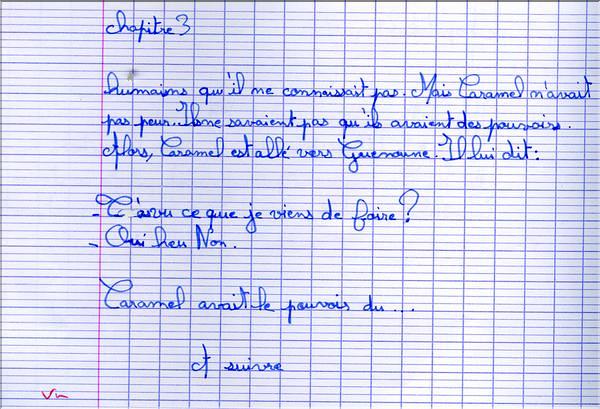 Chapitre 3
humains qu'il ne connaissait pas. Mais Caramel n'avait
pas peur. Ils ne savaient pas qu'ils avaient des pouvoirs.
Alors, Caramel est allé vers Guenoune. Il lui dit:
- T'as vu ce que je viens de faire?
- Oui heu Non.
Caramel avait le pouvoir du...
A suivre
Vu